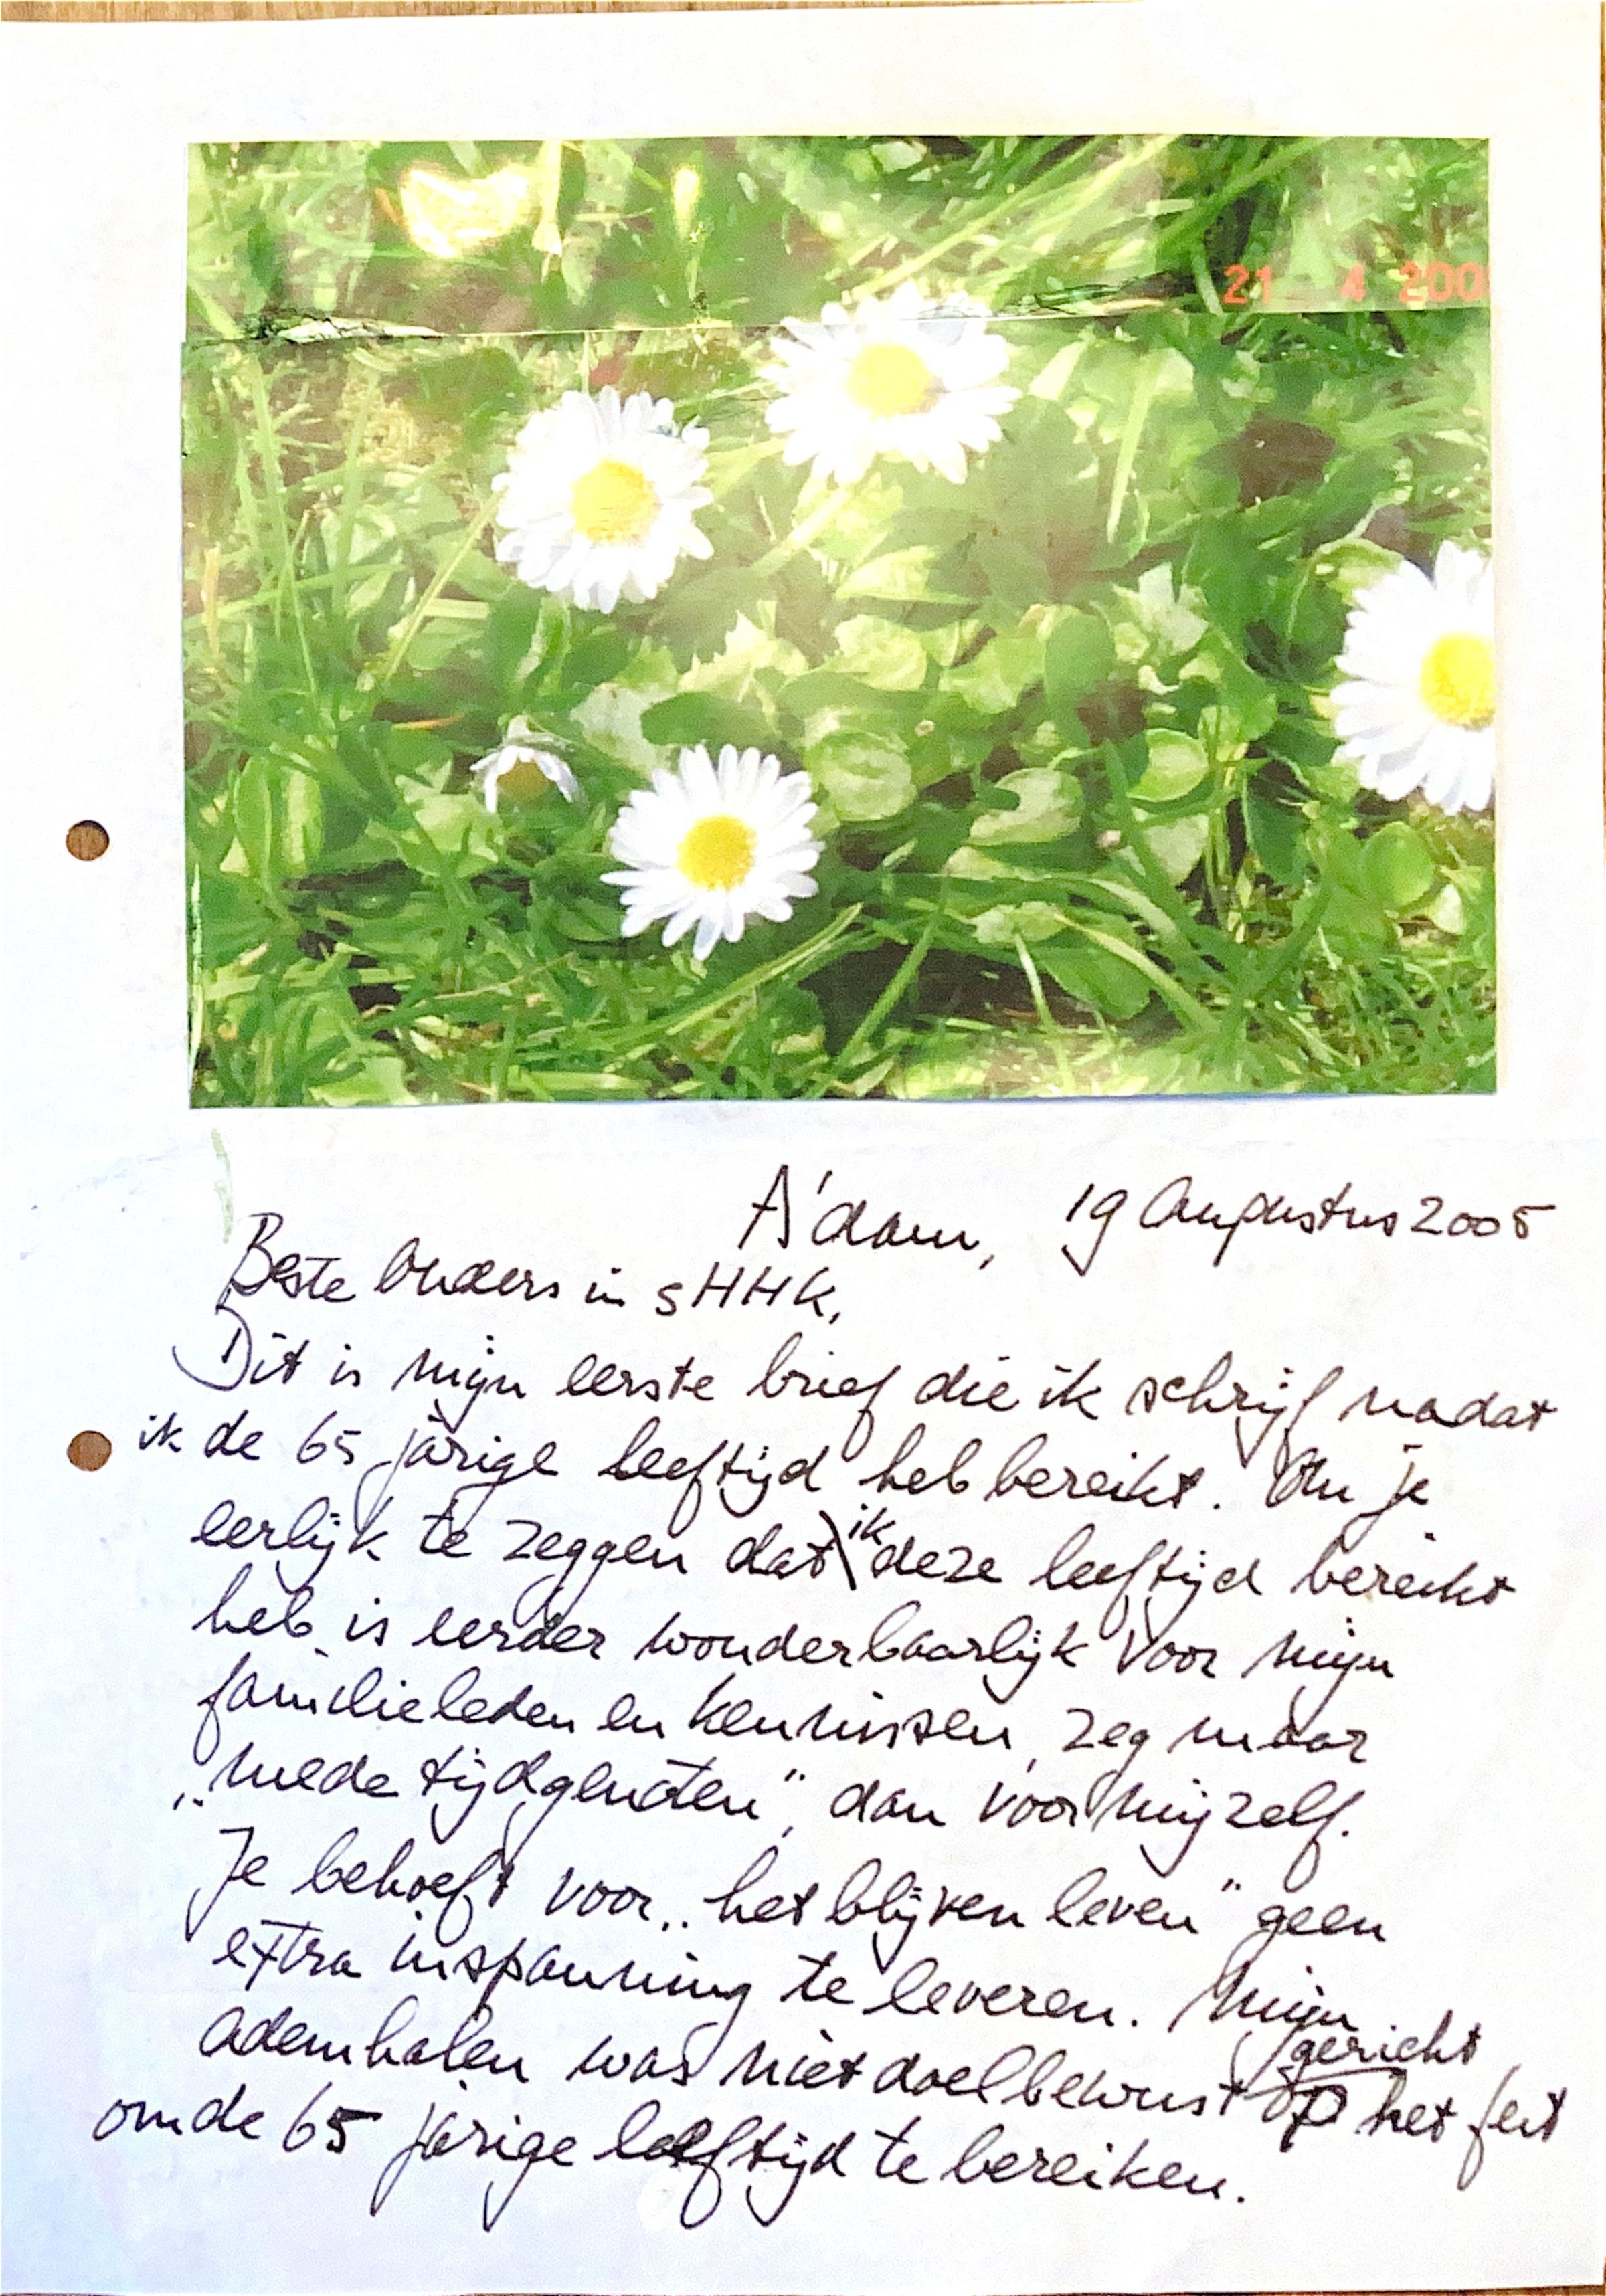 21 4 200
A'dam, 19 Augustus 2005
Beste Ouders in sHHK,
Dit is mijn eerste brief die ik schrijf nadat
ik de 65 jarige leeftijd heb bereikt. Om je
eerlijk te zeggen dat ik deze leeftijd bereikt
heb is eerder wonderbaarlijk voor mijn
familieleden en kennissen, zeg maar
„mede tijdgenoten", dan voor mijzelf.
Je behoeft voor „het blijven leven" geen
extra inspanning te leveren. Mijn
ademhalen was niet doelbewust gericht op het feit
om de 65 jarige leeftijd te bereiken.